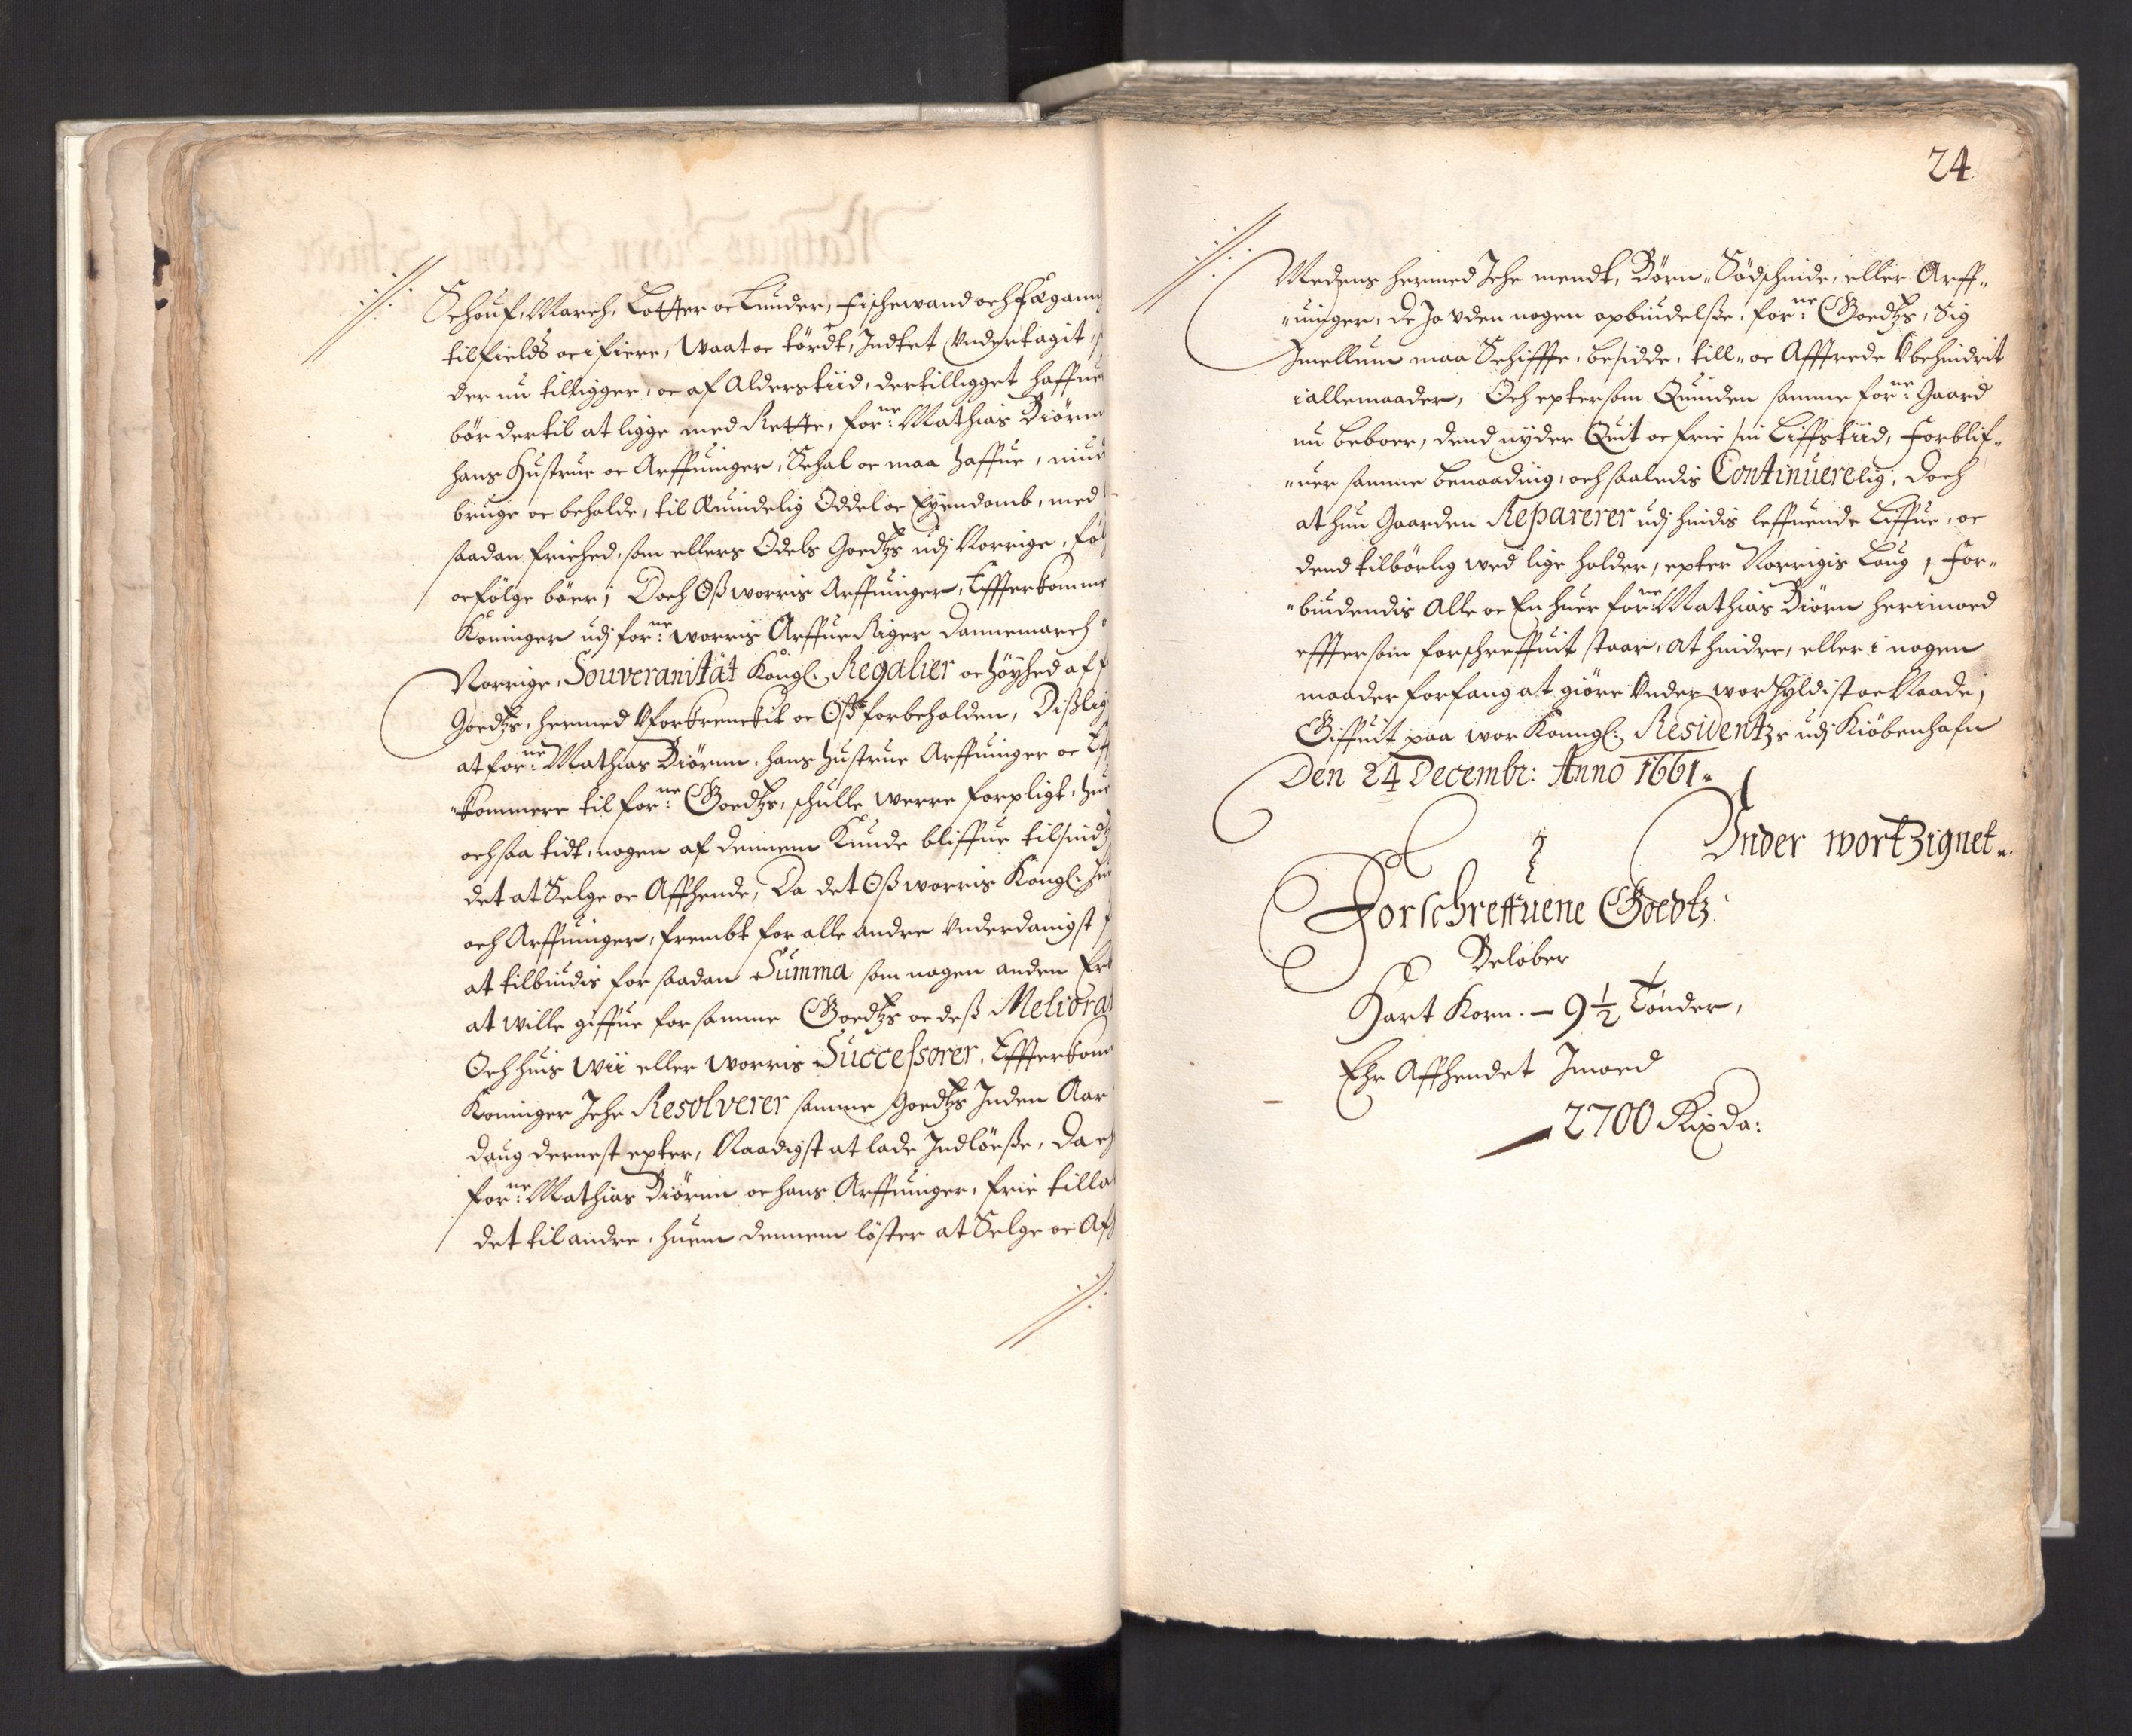 Schouf, March, Lotter oc Lunder, Fischewand och Fægang
til fields oc i fiere, Waat oc tördt, Indtet Vndertagit,
der nu tilligger, oc af Alders tiid, dertilligget haffuer
bör dertil at ligge med Rette, for:ne Mathias Biörnn
hans Hustrue oc Arffuinger, Schal oc maa haffue, niude
bruge oc beholde, til Æuindelig Oddel oc Eyendomb, med
saadan friehed, som ellers Odels Goedtzs udj Norrige,
oc følge böer; Doch Oß worris Arffuinger, Effterkomme
Koninger udj for:ne worris Arffue Riger Dannemarch
Norrige, Souveranität Kongl: Regalier oc höyhed af
Goedtzs, hermed Vforkrencktt oc Oß forbeholden, Dißlig
at for:ne Mathias Biörnn, hans hustrue Arffuinger oc Eff
"kommere til for:ne Goedtzs, schulle werre forpligt,
och saa tidt, nogen af dennem Kunde bliffue tilsindtz
det at Selge oc Affhende, Da det Oß worris Kongl:
och Arffuinger, frembt for alle andre Vnderdanigst
at tilbiudis for saadan Summa som nogen anden
at wille giffue for samme Goedtzs oc deß Meliora
Och huis wii eller worris Successorer, Effterkom
Koninger Iche Resolverer samme Goedtzs Inden Aar
daug dernest epter, Naadigst at lade Indlöeße, Da
for:ne Mathias Biörnn oc hans Arffuinger, frie tilla
det til andre, huem dennem löster at Selge oc Aff
24
Medens hermed Iche mendt, Börn, Södschinde, eller Arff-
"uinger, De Io vden nogen opbindelße, for:ne Goedtzs, Sig
Imellum maa Schiffte, besidde, till- oc Afftrede Vbehindrit
i allemaader, Och eptersom Quinden samme for:ne Gaard
nu beboer, dend nyder Quit oc frie sin Liffstiid, Forblif-
"uer samme benaading, och saaledis Continuerelig, Doch
at hun Gaarden Reparerer udj hindis leffuende Liffue, oc
dend tilbörlig wed lige holder, epter Norrigis Laug, For-
"biudendis Alle oc En huer for:ne Mathias Biörn herimoed
efftersom forschreffuit staar, at hindre, eller i nogen
maader forfang at giöre Vnder wor Hyldist oc Naade;
Giffuit paa wor Konngl: Residentz udj Kiöbenhafn
Den 24 Decembr: Anno 1661.
Vnder wort Zignet.
Forschreffuene Goedtz
Beløber
Hart Korn. - 9 1/2 Tönder,
Ehr Affhendet Imoed
2700 Rixda: